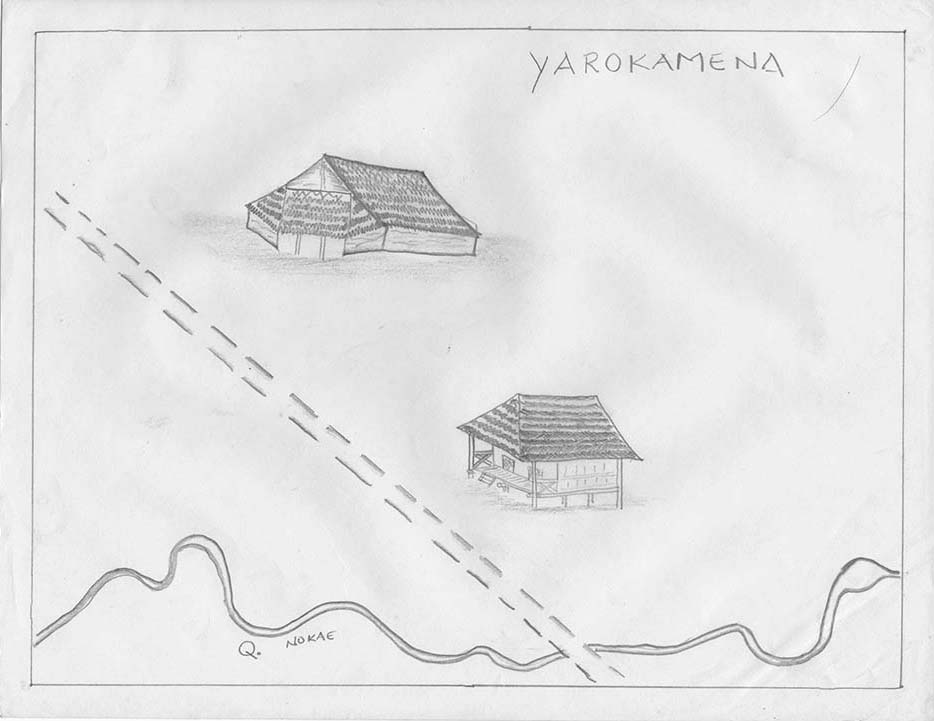 YAROKAMENA
Q. NOKAE